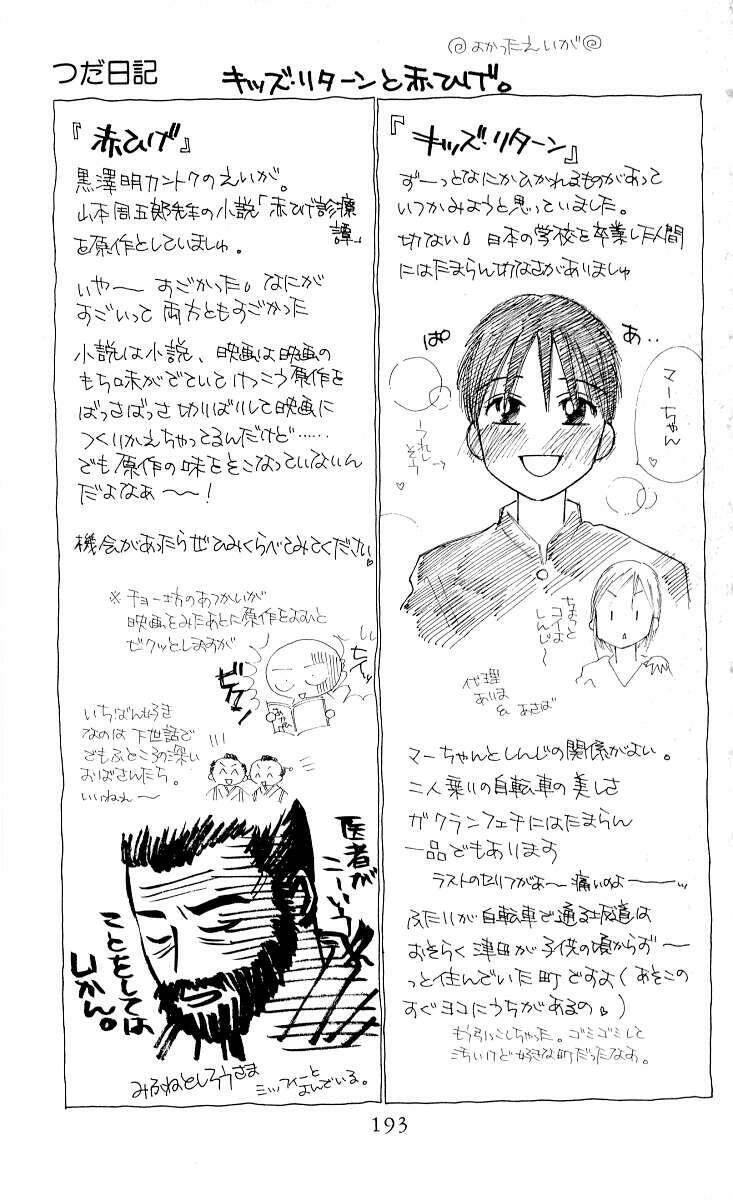 ＠よかったえいが＠
つだ日記
キッズ・リターンと赤ひげ。
『キッズ・リターン』
ずーっとなにかひかれるものがあって
いつかみようと思っていました。
切ない。日本の学校を卒業した人間
にはたまらん切なさがありましゅ
ぱ
あ、、
マーちゃん
うれしそう
ちょっと
コイよ
しんじ〜
代理
あいは
& あさば
マーちゃんとしんじの関係がよい。
二人乗りの自転車の美しさ
ガクランフェチにはたまらん
一品でもあります
ラストのセリフがよ〜痛いのよーーー
ふたりが自転車で通る坂道は
おそらく津田が子供の頃からず〜
っと住んでいた町ですよ（あそこの
すぐヨコにうちがあるの。）
もう引っこしちゃった。ゴミゴミして
汚いけど好きな町だったなあ。
『赤ひげ』
黒澤明カントクのえいが。
山本周五郎先生の小説「赤ひげ診療
譚」
を原作としていましゅ。
いや〜 すごかった。なにが
すごいって 両方ともすごかった
小説は小説、映画は映画の
もち味がでていてけっこう原作を
ばっさばっさ切りばりして映画に
つくりかえちゃってるんだけど……
でも原作の味をそこなっていないん
だよなぁ〜〜！
機会があったらぜひみくらべてみてください
※チョー坊のあつかいが
映画をみたあとに原作をよむと
ビクッとしますが
ビクッ
いちばん好き
なのは下世話で
でもふところの深い
おばさんたち。
いいねぇ〜
医者が
こーいう
ことをしては
いかん。
みふねとしろうさま
ミッフィーと
よんでいる。
193